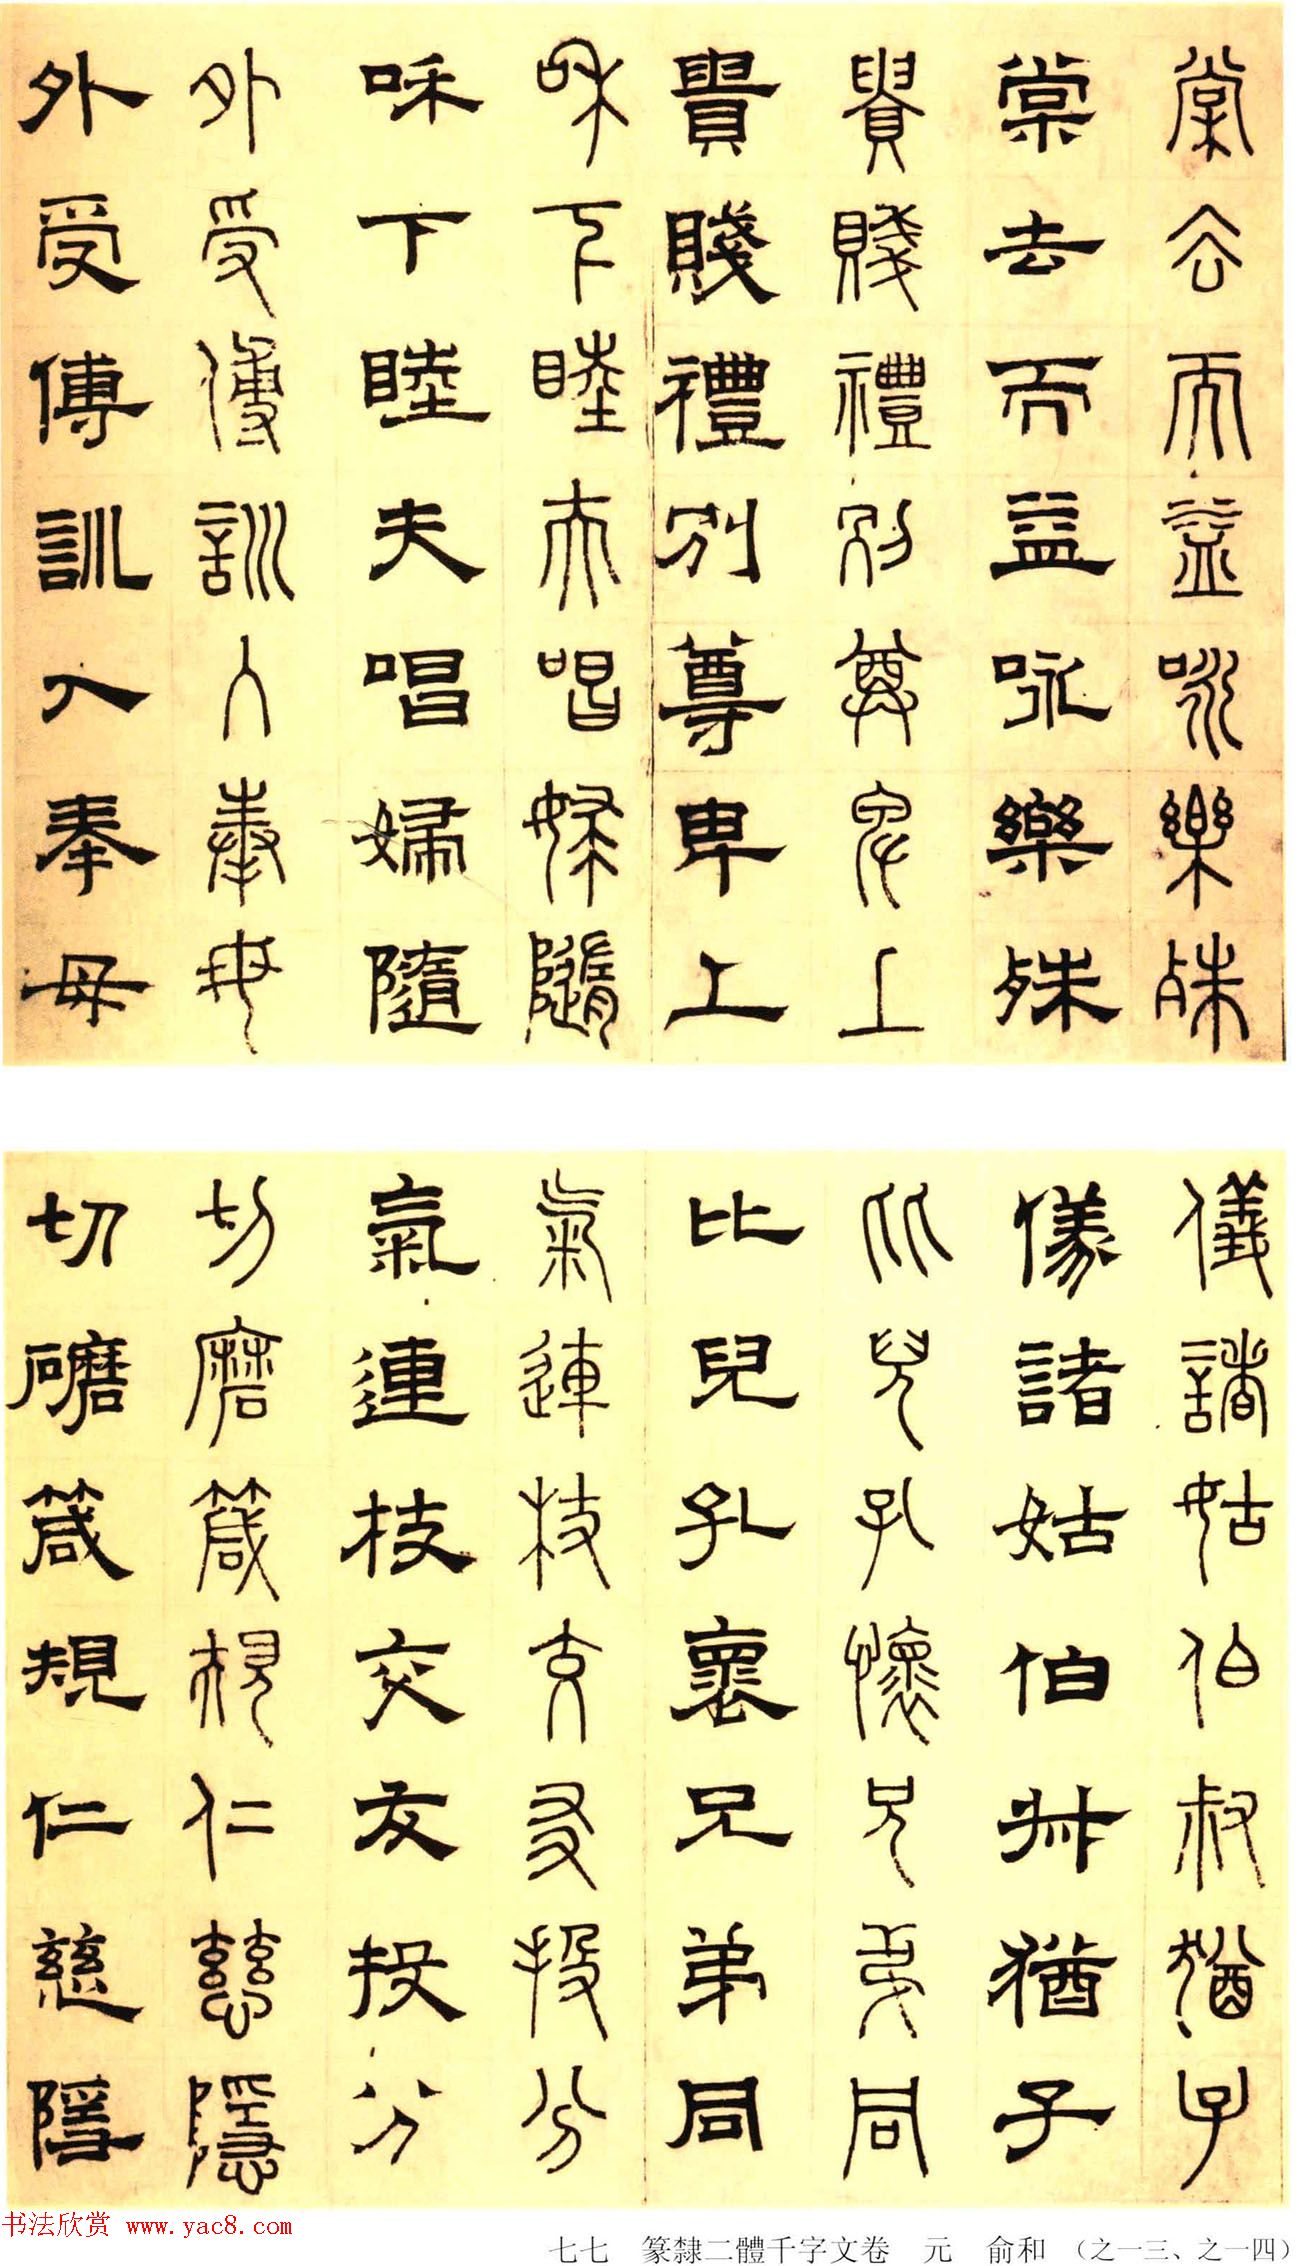 棠去而益咏樂殊
棠去而益咏樂殊
貴賤禮別尊卑上
貴賤禮別尊卑上
咊下睦夫唱婦隨
咊下睦夫唱婦隨
外受傅訓入奉母
外受傅訓入奉母
儀諸姑伯叔猶子
儀諸姑伯叔猶子
比兒孔懷兄弟同
比兒孔褱兄弟同
氣連枝交友投分
氣連枝交友投分
切磨箴規仁慈隱
切磨箴規仁慈隱
书法欣赏 www.yac8.com
七七 篆隸二體千字文卷 元 俞和 (之一三、之一四)